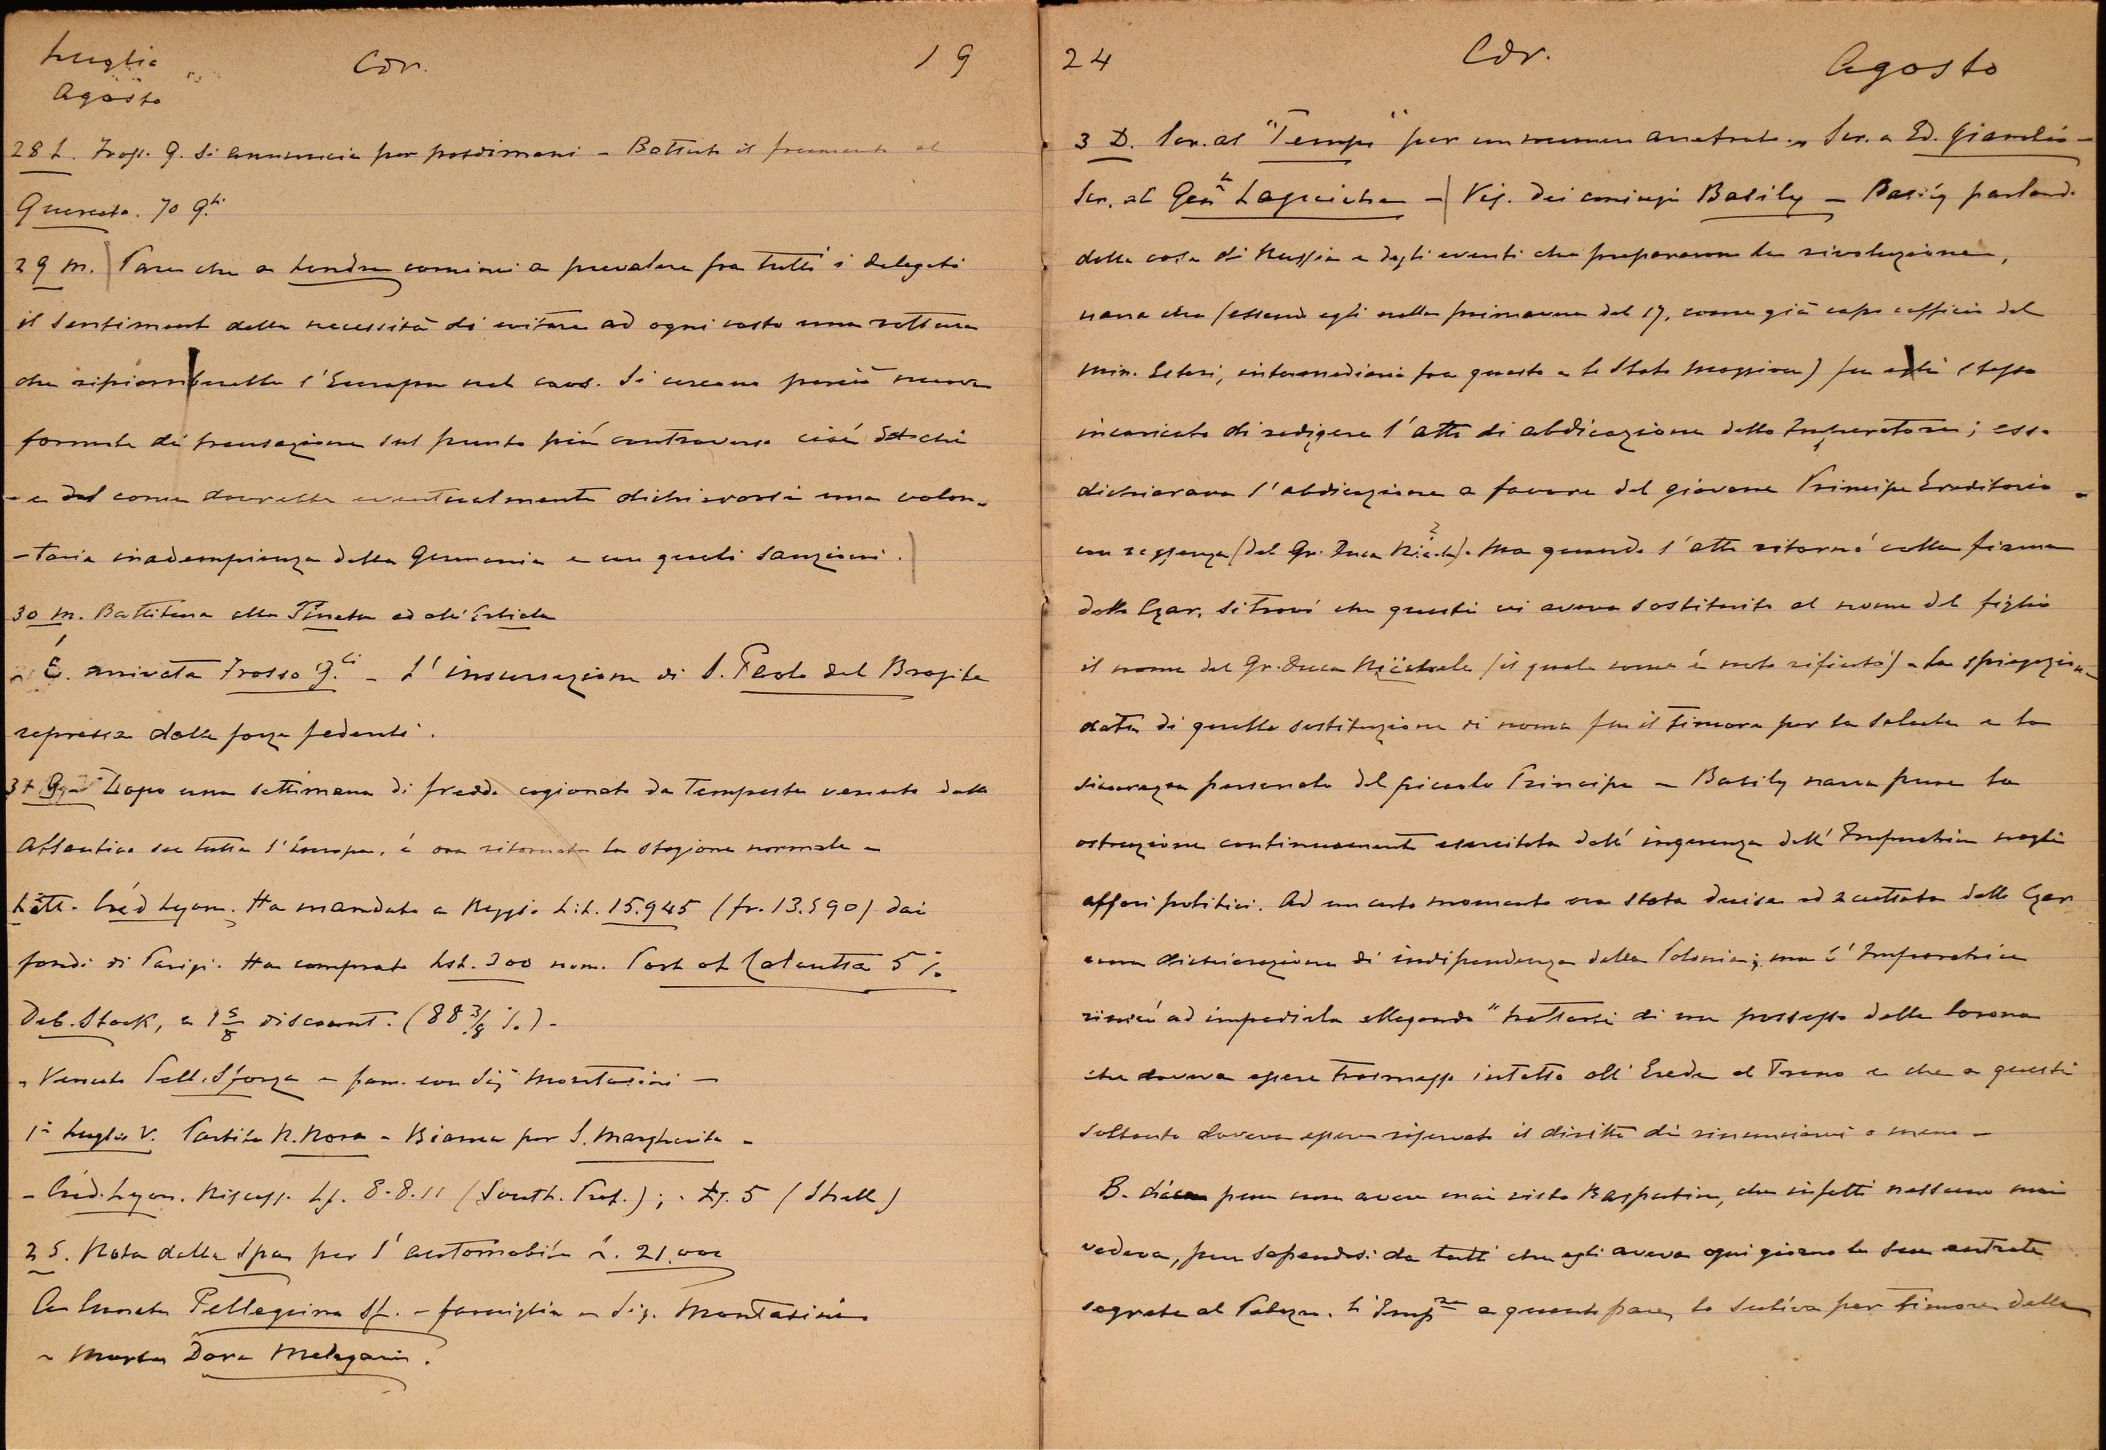 Luglio Cor. 19
Agosto
28 L. Fros. G. si annuncia per posdimani - Battuto il frumento al
Querceto. 70 q.li
29 M. Pare che a Londra cominci a prevalere fra tutti i delegati
il sentimento della necessità di evitare ad ogni costo una rottura
che ripiomberebbe l'Europa nel caos. Si cercano perciò nuove
formule di transazione sul punto più controverso cioè da chi
- e del come dovrebbe eventualmente dichiararsi una volon-
-taria inadempienza della Germania e con quali sanzioni.
30 M. Battitura alla Pineta ed all'
- È arrivata Frosso G.li - L'insurrezione di S. Paolo del Brasile
repressa dalle forze federali.
31 Dopo una settimana di freddo cagionato da tempesta venuta dall'
Atlantico su tutta l'Europa, è ora ritornata la stagione normale -
Lett. Créd Lyon. Ha mandato a Reggio Lit. 15.945 (fr. 13.590) dai
fondi di Parigi. Ha comprato Lst. 300 nom. Port of Calcutta 5 %
Deb. Stock, a 1 5/8 discount. (88 3/8 %.) -
- Venuta Pell. Sforza - fam. con Sig. Montasini -
1° Luglio V. Partita N. Nora - Bianca per S. Margherita -
- Créd. Lyon. Riscoss. Ls. 8.8.11 (South. Pref.); Ls. 5 (Shell)
2 S. Nota della Spa per l'automobile £. 21.000
Pellegrina Sf. - famiglia - Sig. Montasini
- Morta Dora Melegari.
24 Cor. Agosto
3 D. Scr. al "Temps" per un numero arretrato - Scr. a Ed.
Scr. al Gen. - Vis. dei coniugi Basily - Basily parlando
delle cose di Russia e degli eventi che prepararono la rivoluzione,
narra che (essendo egli nella primavera del 17, come già capo ufficio del
Min. Esteri, intermediario fra questo e lo Stato Maggiore) fu egli stesso
incaricato di redigere l'atto di abdicazione dello Imperatore; esso
dichiarava l'abdicazione a favore del giovane Principe Ereditario -
con reggenza (del Gr. Duca Nicola). Ma quando l'atto ritornò colla firma
dello Czar, si trovò che questi vi aveva sostituito al nome del figlio
il nome del Gr. Duca Michele (il quale come è noto rifiutò) - La spiegazione
data di quella sostituzione di nome fu il timore per la salute e la
sicurezza personale del piccolo Principe - Basily narra pure la
ostruzione continuamente esercitata dall'ingerenza dell'Imperatrice negli
affari politici. Ad un certo momento era stata decisa ed accettata dallo Czar
una dichiarazione di indipendenza della Polonia; ma l'Imperatrice
riuscì ad impedirla allegando "trattarsi di un possesso della Corona
che doveva essere trasmesso intatto all'Erede al Trono e che a questi
soltanto doveva essere riservato il diritto di rinunciarvi o meno -
B. dice pure non avere mai visto Rasputin, che infatti nessuno mai
vedeva, pur sapendosi da tutti che egli aveva ogni giorno la sua entrata
segreta al Palazzo. L'Imp.ce a quanto pare, lo subiva per timore della